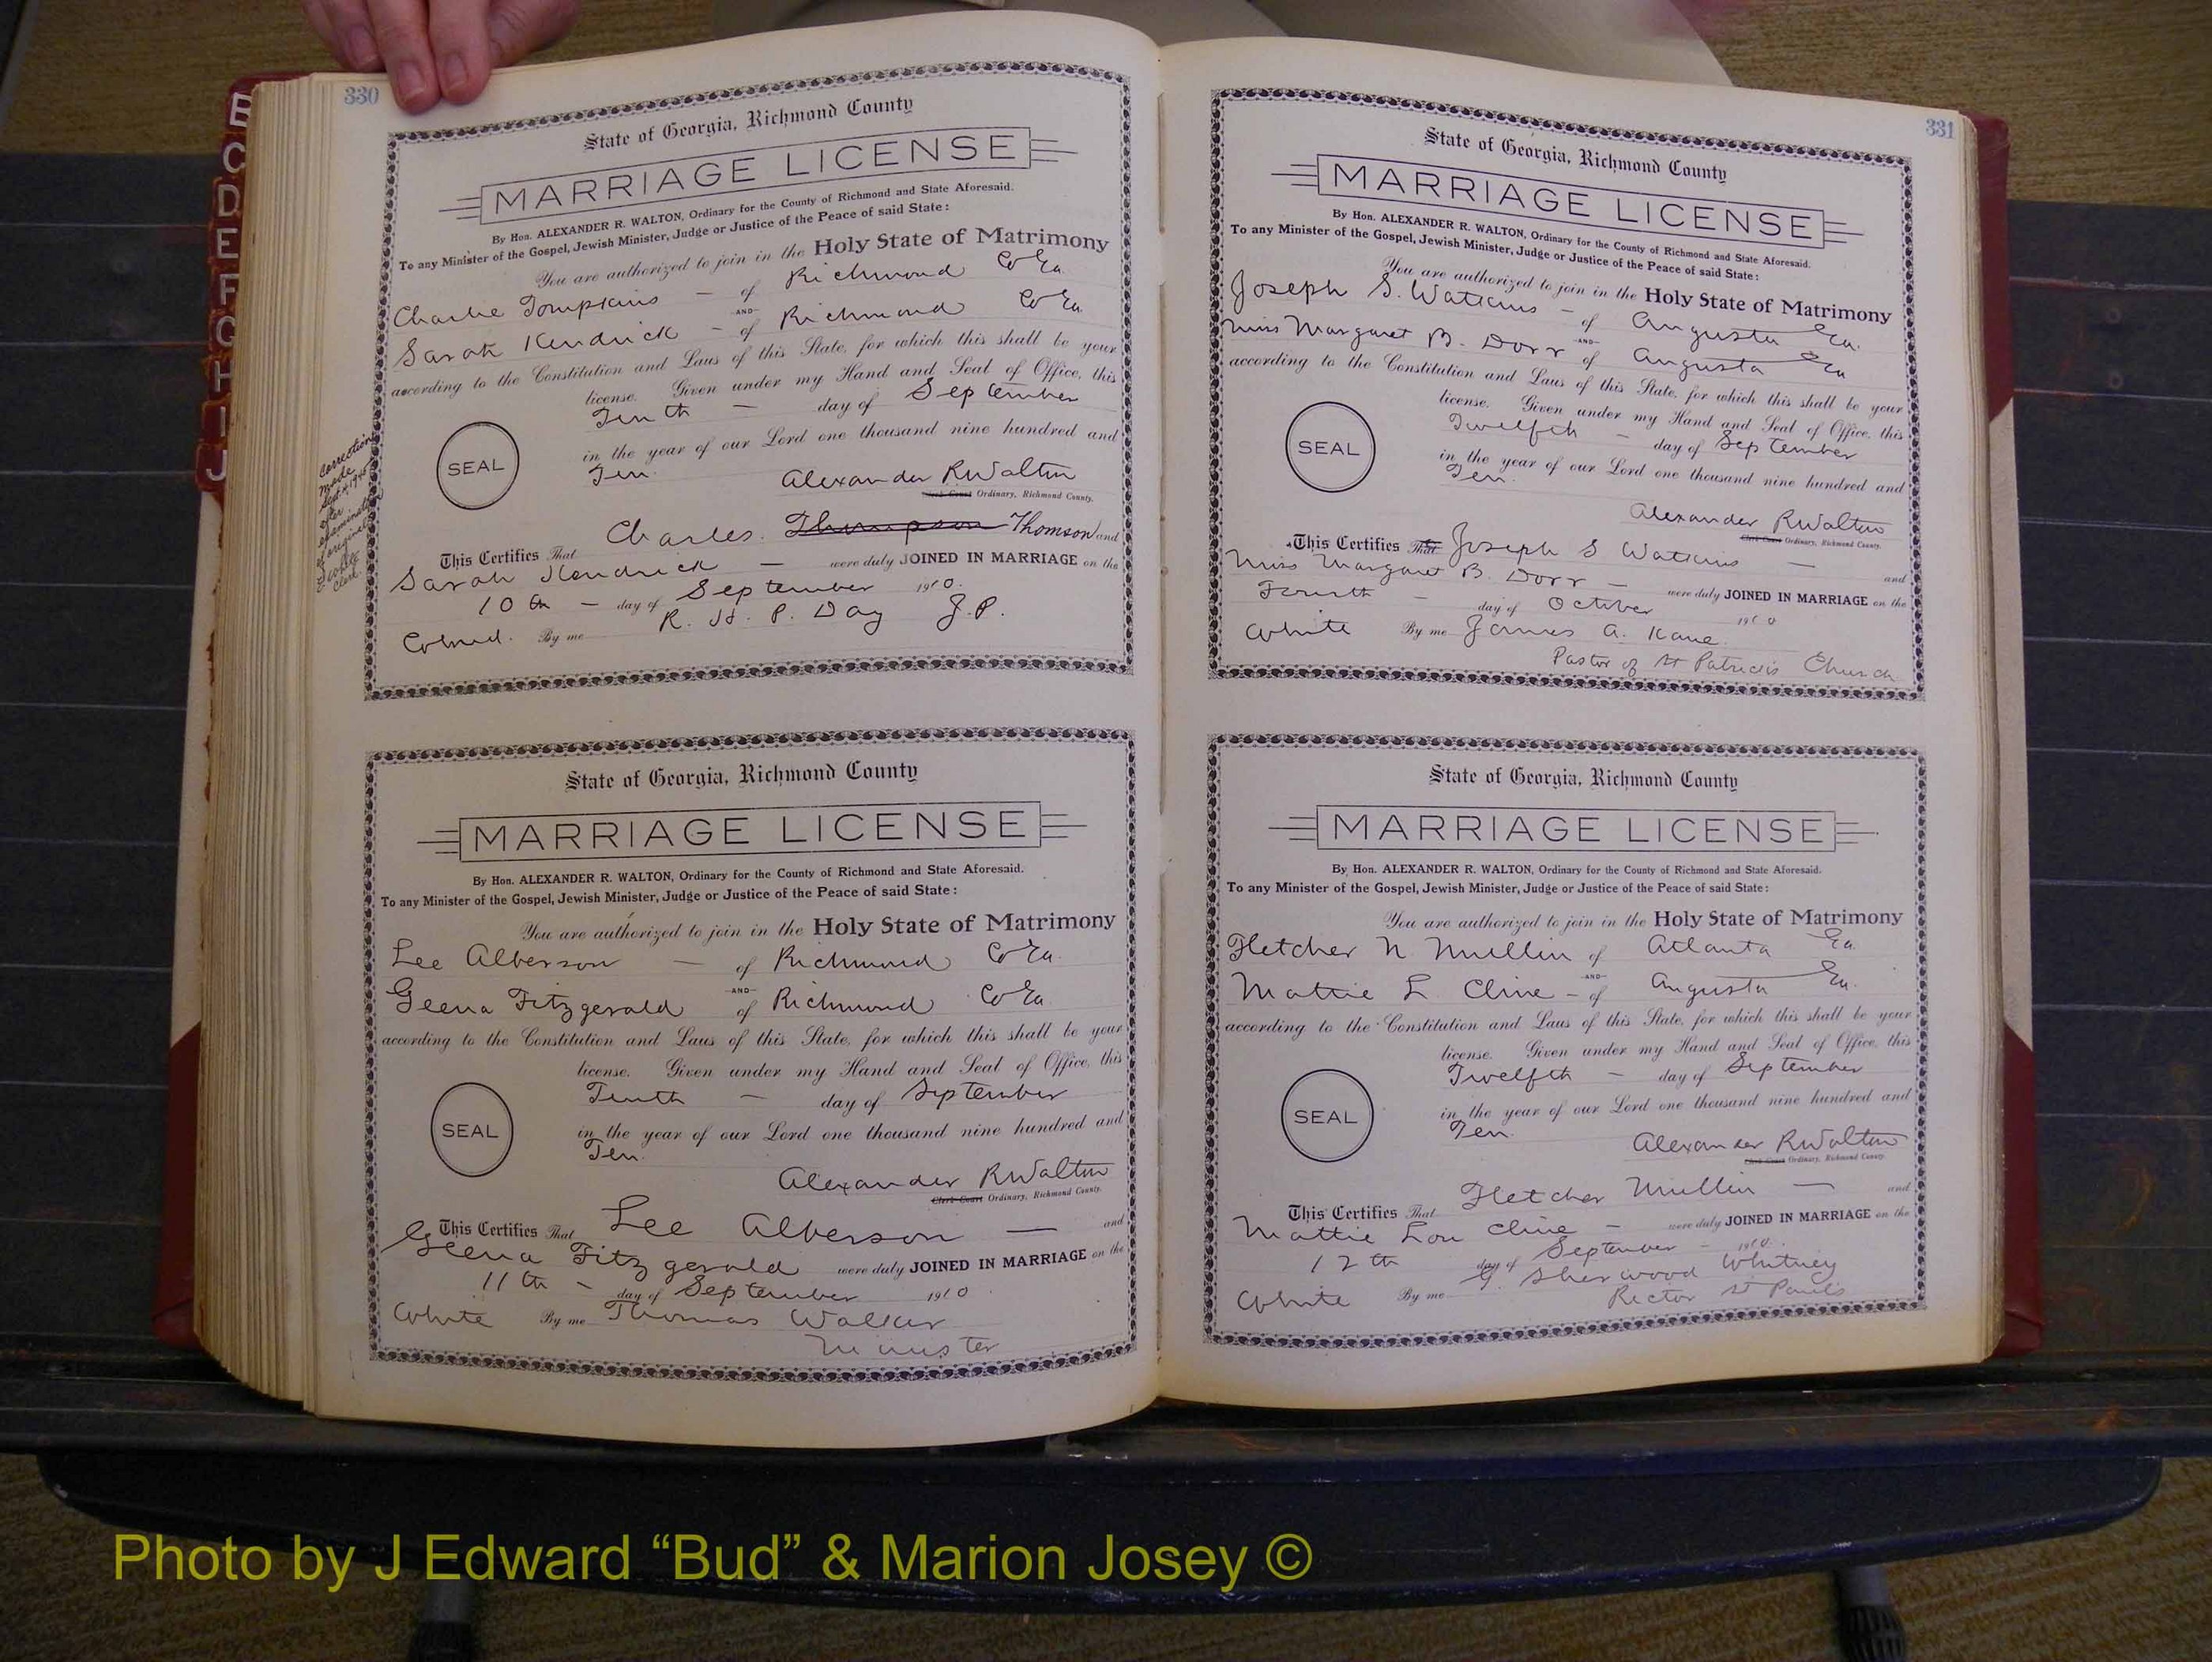 B
C
D
E
F
G
H
I
J
330
State of Georgia, Richmond County
MARRIAGE LICENSE
By Hon. ALEXANDER R. WALTON, Ordinary for the County of Richmond and State Aforesaid.
To any Minister of the Gospel, Jewish Minister, Judge or Justice of the Peace of said State:
You are authorized to join in the Holy State of Matrimony
Charlie Tompkins — of Richmond Co Ga.
-AND-
Sarah Kendrick — of Richmond Co Ga
according to the Constitution and Laws of this State, for which this shall be your
license. Given under my Hand and Seal of Office, this
Tenth — day of September
in the year of our Lord one thousand nine hundred and
SEAL
Ten.
Alexander R Walton
Clerk Court Ordinary, Richmond County.
Correction
made
Sept 4 1940
after
examination
of original
Clerk.
This Certifies That Charles. Thompson Thomson and
Sarah Kendrick — were duly JOINED IN MARRIAGE on the
10th — day of September 1910.
Colored. By me R. H. P. Day J.P.
State of Georgia, Richmond County
MARRIAGE LICENSE
By Hon. ALEXANDER R. WALTON, Ordinary for the County of Richmond and State Aforesaid.
To any Minister of the Gospel, Jewish Minister, Judge or Justice of the Peace of said State:
You are authorized to join in the Holy State of Matrimony
Lee Alberson — of Richmond Co Ga.
-AND-
Geena Fitzgerald of Richmond Co Ga.
according to the Constitution and Laws of this State, for which this shall be your
license. Given under my Hand and Seal of Office, this
Tenth — day of September
in the year of our Lord one thousand nine hundred and
SEAL
Ten.
Alexander R Walton
Clerk Court Ordinary, Richmond County.
This Certifies That Lee Alberson — and
Geena Fitzgerald were duly JOINED IN MARRIAGE on the
11th — day of September 1910
White By me Thomas Walker
Minister
331
State of Georgia, Richmond County
MARRIAGE LICENSE
By Hon. ALEXANDER R. WALTON, Ordinary for the County of Richmond and State Aforesaid.
To any Minister of the Gospel, Jewish Minister, Judge or Justice of the Peace of said State:
You are authorized to join in the Holy State of Matrimony
Joseph S. Watkins — of Augusta Ga.
-AND-
Miss Margaret B. Dorr of Augusta Ga
according to the Constitution and Laws of this State, for which this shall be your
license. Given under my Hand and Seal of Office, this
Twelfth — day of September
in the year of our Lord one thousand nine hundred and
SEAL
Ten.
Alexander R Walton
Clerk Court Ordinary, Richmond County.
This Certifies That Joseph S Watkins — and
Miss Margaret B. Dorr — were duly JOINED IN MARRIAGE on the
Fourth — day of October 1910
White By me James A. Kane
Pastor of St Patricks Church
State of Georgia, Richmond County
MARRIAGE LICENSE
By Hon. ALEXANDER R. WALTON, Ordinary for the County of Richmond and State Aforesaid.
To any Minister of the Gospel, Jewish Minister, Judge or Justice of the Peace of said State:
You are authorized to join in the Holy State of Matrimony
Fletcher N Mullin of Atlanta Ga.
-AND-
Mattie L Cline — of Augusta Ga.
according to the Constitution and Laws of this State, for which this shall be your
license. Given under my Hand and Seal of Office, this
Twelfth — day of September
in the year of our Lord one thousand nine hundred and
SEAL
Ten.
Alexander R Walton
Clerk Court Ordinary, Richmond County
This Certifies That Fletcher Mullen — and
Mattie Lou Cline — were duly JOINED IN MARRIAGE on the
12th day of September — 1910.
White By me G. Sherwood Whitney
Rector St Pauls
Photo by J Edward “Bud” & Marion Josey ©